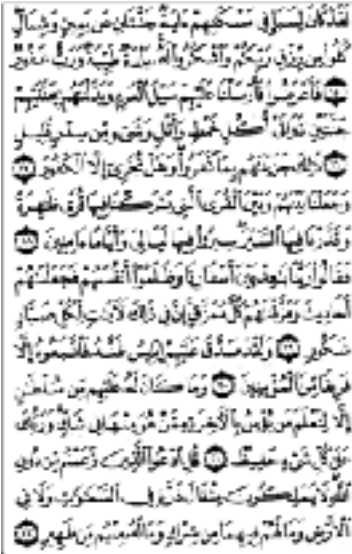 لَقَدْ كَانَ لِسَبَإٍ فِي مَسْكَنِهِمْ ءَايَةٌ جَنَّتَانِ عَن يَمِينٍ وَشِمَالٍ
كُلُوا۟ مِن رِّزْقِ رَبِّكُمْ وَٱشْكُرُوا۟ لَهُۥ بَلْدَةٌ طَيِّبَةٌ وَرَبٌّ غَفُورٌ
۝١٥ فَأَعْرَضُوا۟ فَأَرْسَلْنَا عَلَيْهِمْ سَيْلَ ٱلْعَرِمِ وَبَدَّلْنَٰهُم بِجَنَّتَيْهِمْ
جَنَّتَيْنِ ذَوَاتَىْ أُكُلٍ خَمْطٍ وَأَثْلٍ وَشَىْءٍ مِّن سِدْرٍ قَلِيلٍ
۝١٦ ذَٰلِكَ جَزَيْنَٰهُم بِمَا كَفَرُوا۟ وَهَلْ نُجَٰزِىٓ إِلَّا ٱلْكَفُورَ ۝١٧
وَجَعَلْنَا بَيْنَهُمْ وَبَيْنَ ٱلْقُرَى ٱلَّتِى بَٰرَكْنَا فِيهَا قُرًى ظَٰهِرَةً
وَقَدَّرْنَا فِيهَا ٱلسَّيْرَ سِيرُوا۟ فِيهَا لَيَالِىَ وَأَيَّامًا ءَامِنِينَ ۝١٨
فَقَالُوا۟ رَبَّنَا بَٰعِدْ بَيْنَ أَسْفَارِنَا وَظَلَمُوٓا۟ أَنفُسَهُمْ فَجَعَلْنَٰهُمْ
أَحَادِيثَ وَمَزَّقْنَٰهُمْ كُلَّ مُمَزَّقٍ إِنَّ فِى ذَٰلِكَ لَءَايَٰتٍ لِّكُلِّ صَبَّارٍ
شَكُورٍ ۝١٩ وَلَقَدْ صَدَّقَ عَلَيْهِمْ إِبْلِيسُ ظَنَّهُۥ فَٱتَّبَعُوهُ إِلَّا
فَرِيقًا مِّنَ ٱلْمُؤْمِنِينَ ۝٢٠ وَمَا كَانَ لَهُۥ عَلَيْهِم مِّن سُلْطَٰنٍ
إِلَّا لِنَعْلَمَ مَن يُؤْمِنُ بِٱلْءَاخِرَةِ مِمَّنْ هُوَ مِنْهَا فِى شَكٍّ وَرَبُّكَ
عَلَىٰ كُلِّ شَىْءٍ حَفِيظٌ ۝٢١ قُلِ ٱدْعُوا۟ ٱلَّذِينَ زَعَمْتُم مِّن دُونِ
ٱللَّهِ لَا يَمْلِكُونَ مِثْقَالَ ذَرَّةٍ فِى ٱلسَّمَٰوَٰتِ وَلَا فِى
ٱلْأَرْضِ وَمَا لَهُمْ فِيهِمَا مِن شِرْكٍ وَمَا لَهُۥ مِنْهُم مِّن ظَهِيرٍ ۝٢٢